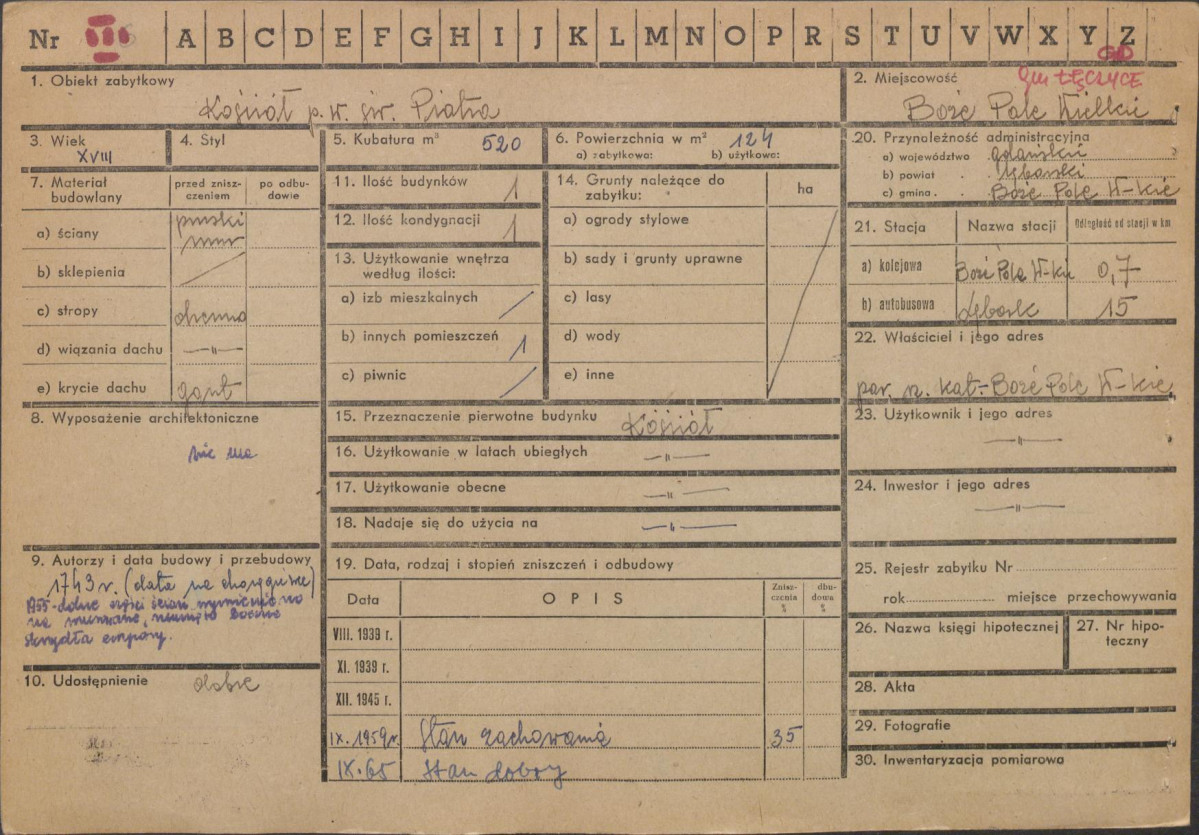 Nr III A B C D E F G H I J K L M N O P R S T U V W X Y Z
GD
1. Obiekt zabytkowy
Kościół p.w. św. Piotra
2. Miejscowość
gm ŁĘCZYCE
Boże Pole Wielkie
3. Wiek
XVIII
4. Styl
5. Kubatura m³ 520
6. Powierzchnia w m² 124
a) zabytkowa: b) użytkowa:
20. Przynależność administracyjna
a) województwo gdańskie
b) powiat . lęborski
c) gmina . Boże Pole W-kie
7. Materiał budowlany
przed zniszczeniem
po odbudowie
a) ściany pruski mur
b) sklepienia
c) stropy drewno
d) wiązania dachu —"—
e) krycie dachu gont
8. Wyposażenie architektoniczne
nie ma
9. Autorzy i data budowy i przebudowy
1743 r. (data na chorągiewce)
1955-dolne części ścian wymieniono
na murowane, usunięto boczne
skrzydła empory.
10. Udostępnienie dobre
11. Ilość budynków 1
12. Ilość kondygnacji 1
13. Użytkowanie wnętrza
według ilości:
a) izb mieszkalnych
b) innych pomieszczeń 1
c) piwnic
14. Grunty należące do
zabytku:
ha
a) ogrody stylowe
b) sady i grunty uprawne
c) lasy
d) wody
e) inne
15. Przeznaczenie pierwotne budynku Kościół
16. Użytkowanie w latach ubiegłych —"—
17. Użytkowanie obecne —"—
18. Nadaje się do użycia na —"—
19. Data, rodzaj i stopień zniszczeń i odbudowy
Data OPIS Znisz-czenia % dbu-dowa %
VIII. 1939 r.
XI. 1939 r.
XII. 1945 r.
IX. 1959 r. Stan zachowania 35
IX. 65 Stan dobry
21. Stacja Nazwa stacji Odległość od stacji w km
a) kolejowa Boże Pole W-kie 0,7
b) autobusowa Lębork 15
22. Właściciel i jego adres
par. rz. kat.- Boże Pole W-kie
23. Użytkownik i jego adres
—"—
24. Inwestor i jego adres
—"—
25. Rejestr zabytku Nr
rok miejsce przechowywania
26. Nazwa księgi hipotecznej
27. Nr hipo-
teczny
28. Akta
29. Fotografie
30. Inwentaryzacja pomiarowa